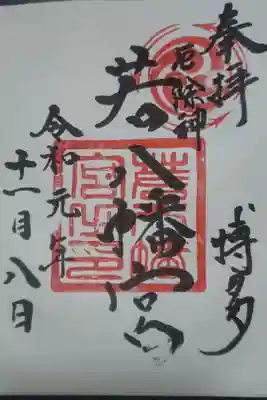 奉拝
博多
厄除神
若八幡宮
令和元年
十一月八日